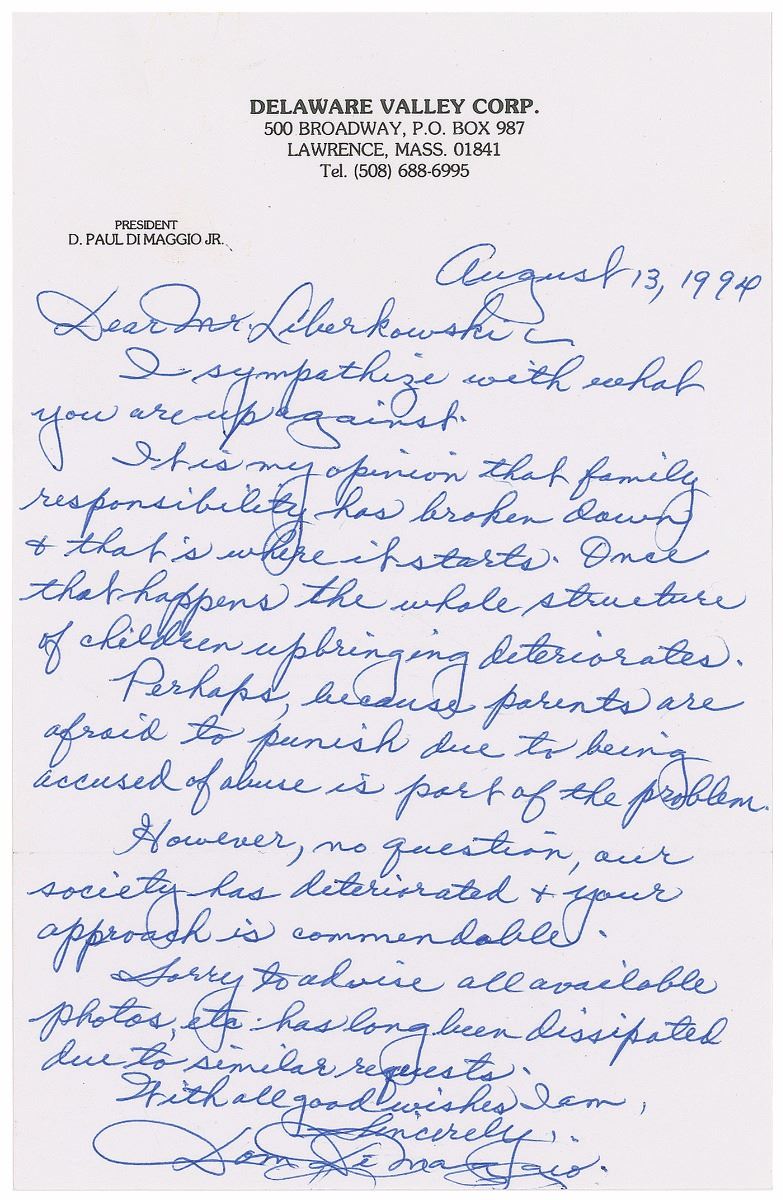 DELAWARE VALLEY CORP.
500 BROADWAY, P.O. BOX 987
LAWRENCE, MASS. 01841
Tel. (508) 688-6995
PRESIDENT
D. PAUL DI MAGGIO JR.
August 13, 1994
Dear Mr. Liberkowski
I sympathize with what
you are up against.
It is my opinion that family
responsibility has broken down
& that is where it starts. Once
that happens the whole structure
of children upbringing deteriorates.
Perhaps, because parents are
afraid to punish due to being
accused of abuse is part of the problem.
However, no question, our
society has deteriorated & your
approach is commendable.
Sorry to advise all available
photos, etc. has long been dissipated
due to similar requests.
With all good wishes I am,
Sincerely,
Dom Di Maggio.